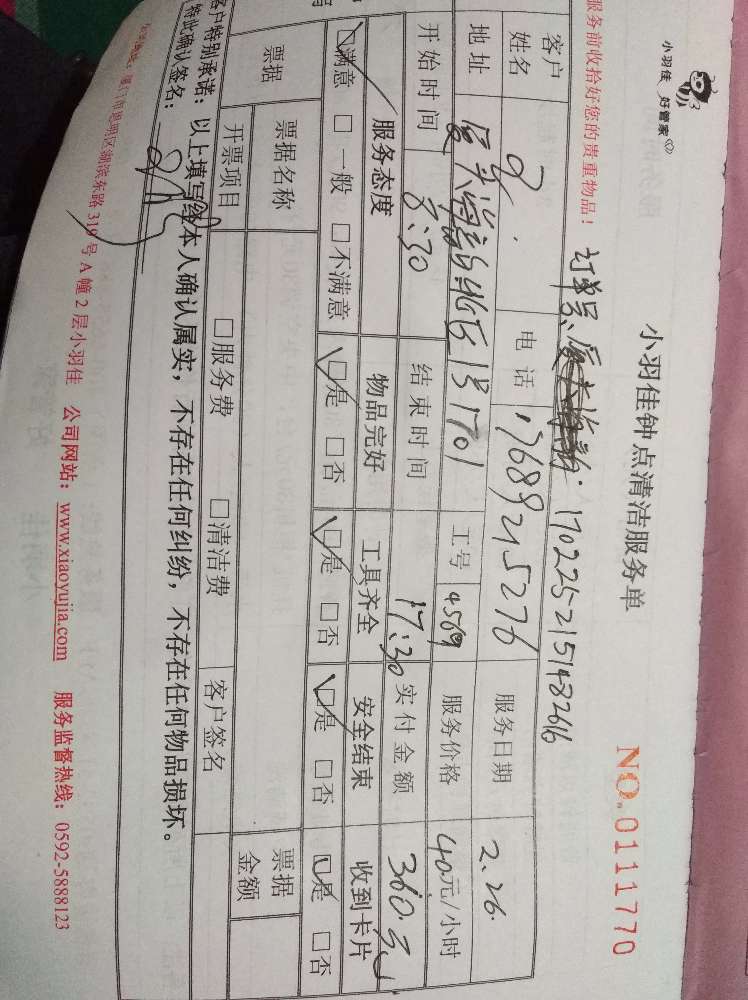 小羽佳 好管家
小羽佳钟点清洁服务单
NO.0111770
服务前收拾好您的贵重物品！ 订单号: 1702252151482616
客户姓名 电话 17689215276 服务日期 2.26.
地址 13 1701 工号 4569 服务价格 40元/小时
开始时间 8:30 结束时间 17:30 实付金额 360.元
服务态度 物品完好 工具齐全 安全结束 收到卡片
☑满意 □一般 □不满意 ☑是 □否 ☑是 □否 ☑是 □否 ☑是 □否
票据 票据名称 票据金额
开票项目 □服务费 □清洁费 客户签名
客户特别承诺：以上填写经本人确认属实，不存在任何纠纷，不存在任何物品损坏。
特此确认签名：
厦门市思明区湖滨东路319号A幢2层小羽佳 公司网站：www.xiaoyujia.com 服务监督热线：0592-5888123